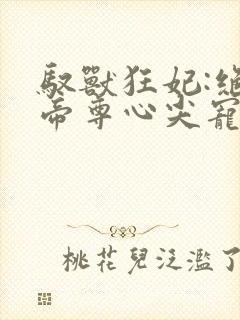 馭獸狂妃:絕
帝尊心尖寵
桃花兒泛濫了